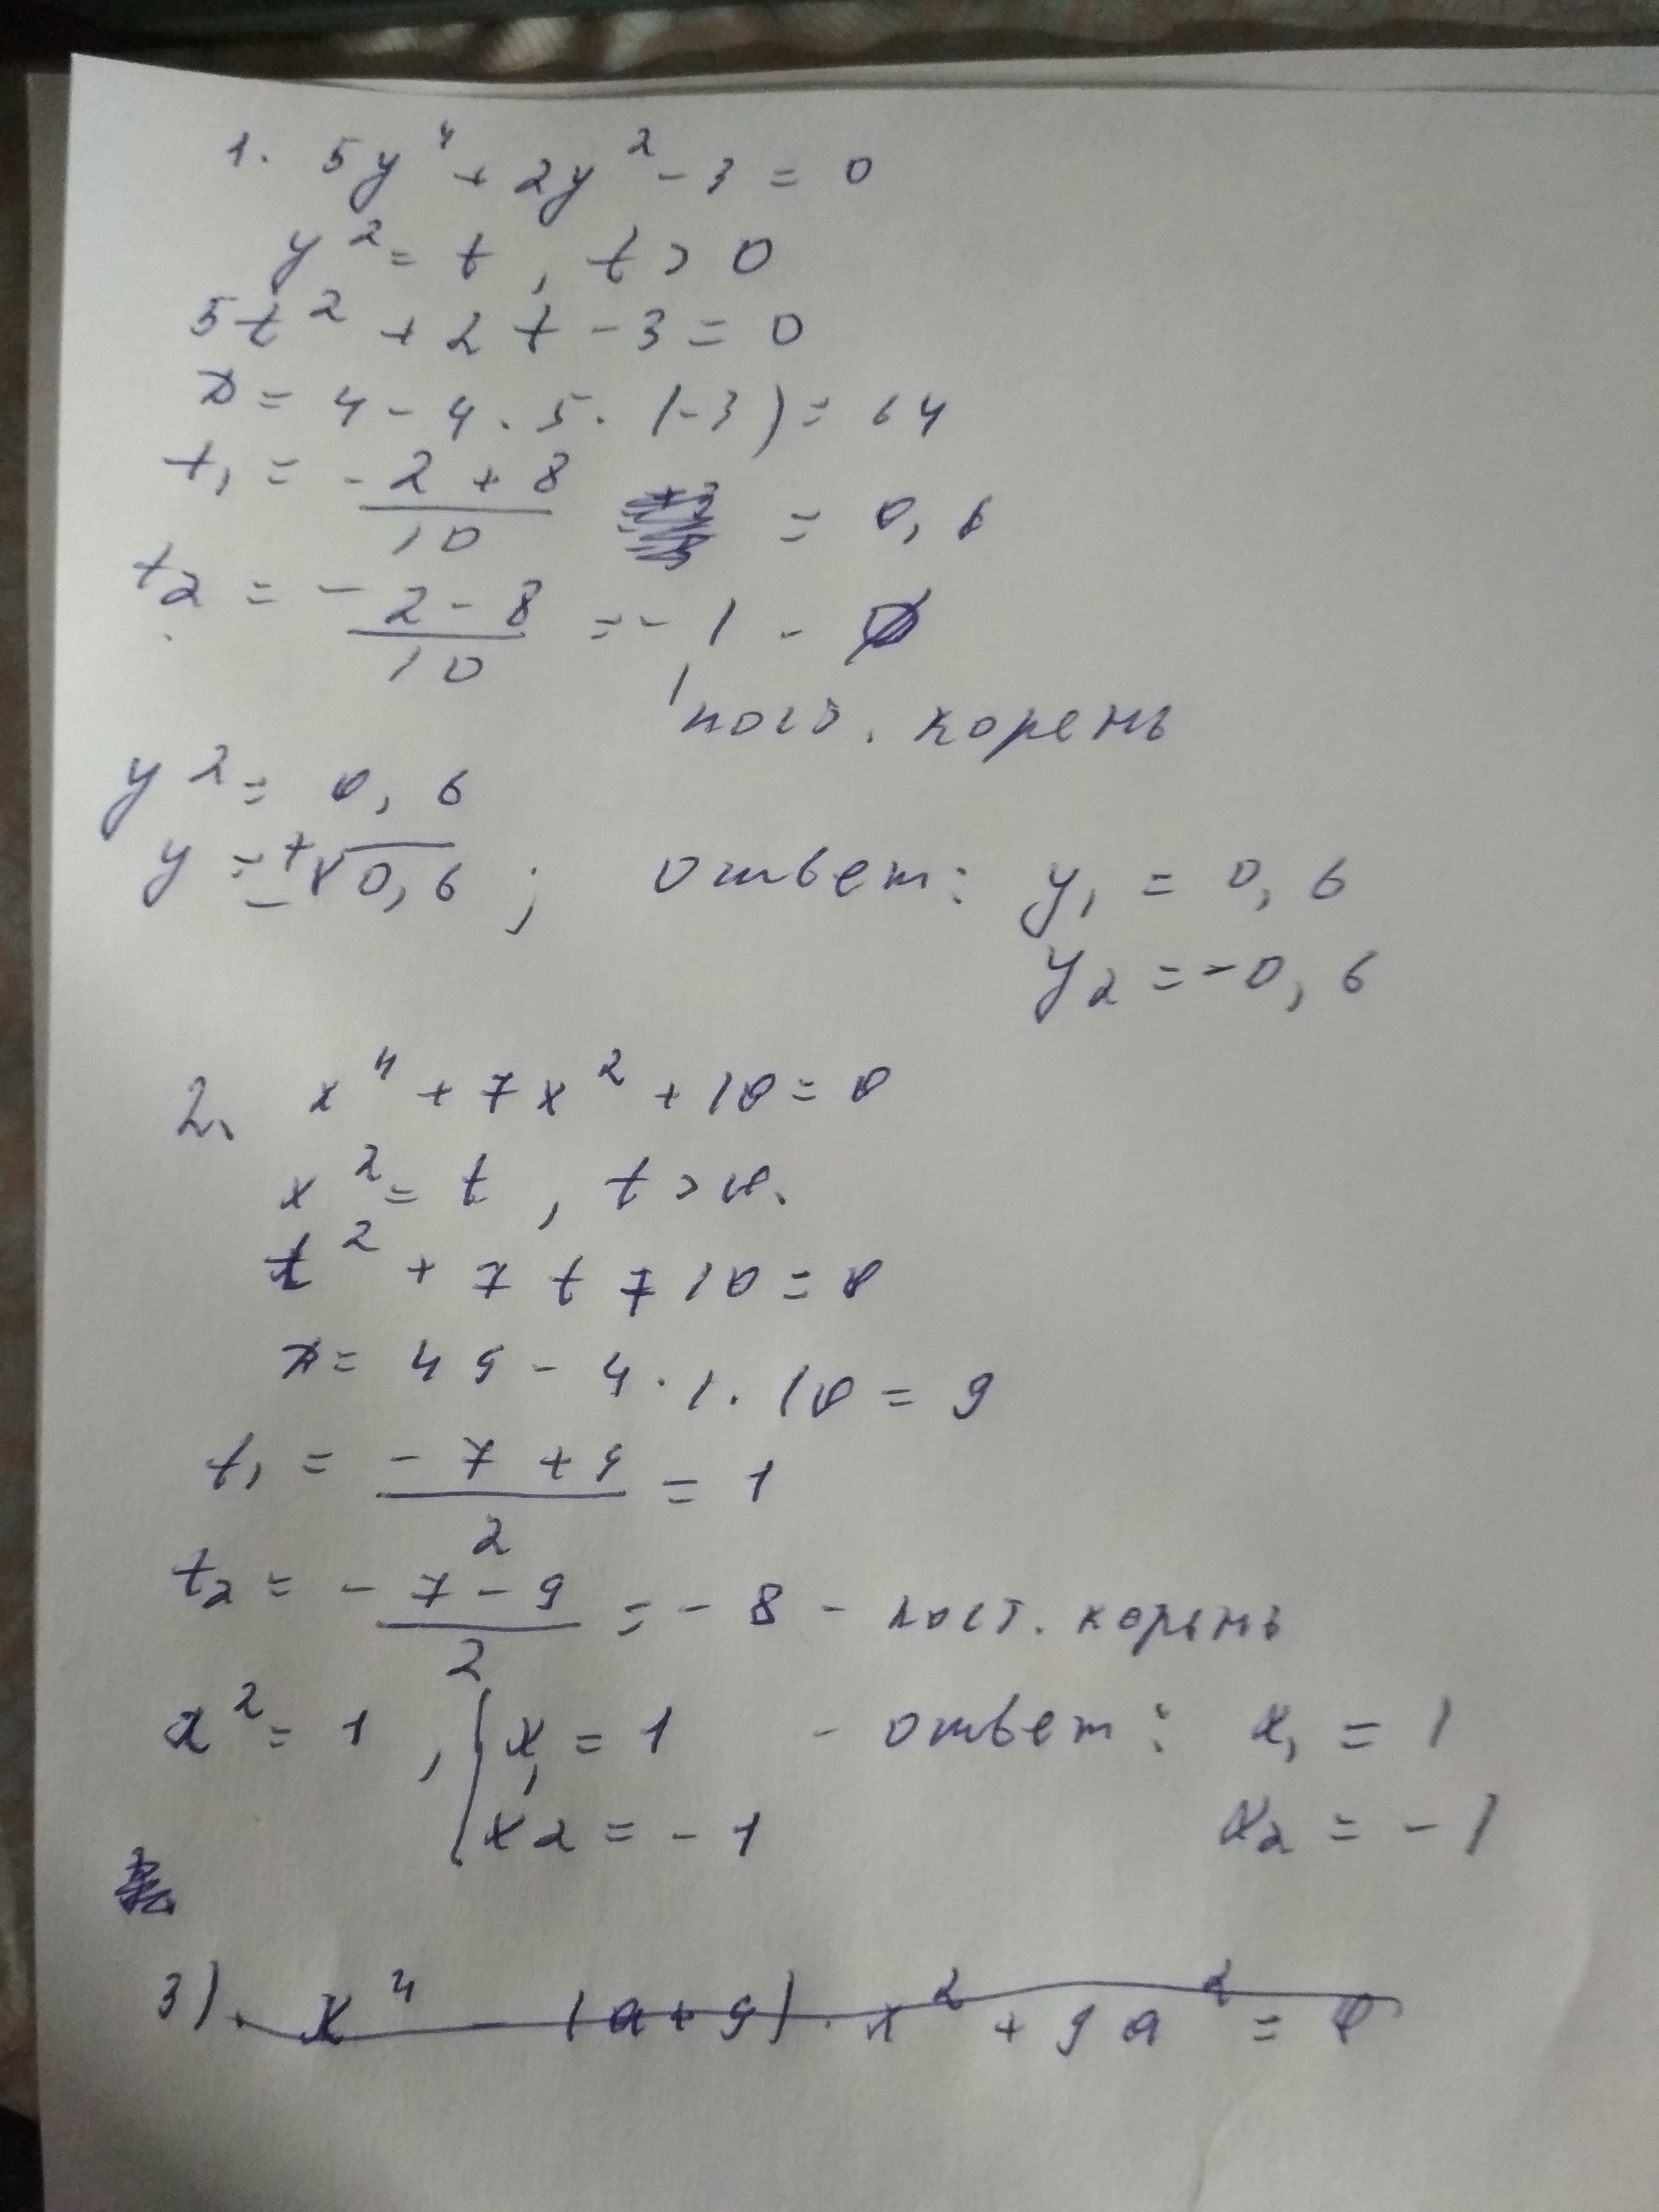 1. 5y⁴ + 2y² - 3 = 0
y² = t, t > 0
5t² + 2t - 3 = 0
D = 4 - 4 · 5 · (-3) = 64
t₁ = (-2 + 8)/10 = 0,6
t₂ = (-2 - 8)/10 = -1 -
пост. корень
y² = 0,6
y = ±√0,6 ; ответ: y₁ = 0,6
y₂ = -0,6
2. x⁴ + 7x² + 10 = 0
x² = t, t > 0.
t² + 7t + 10 = 0
D = 49 - 4 · 1 · 10 = 9
t₁ = (-7 + 9)/2 = 1
t₂ = (-7 - 9)/2 = -8 - пост. корень
x² = 1, x₁ = 1 - ответ: x₁ = 1
x₂ = -1 x₂ = -1
3). x⁴ - (a + 9) · x² + 9a² = 0